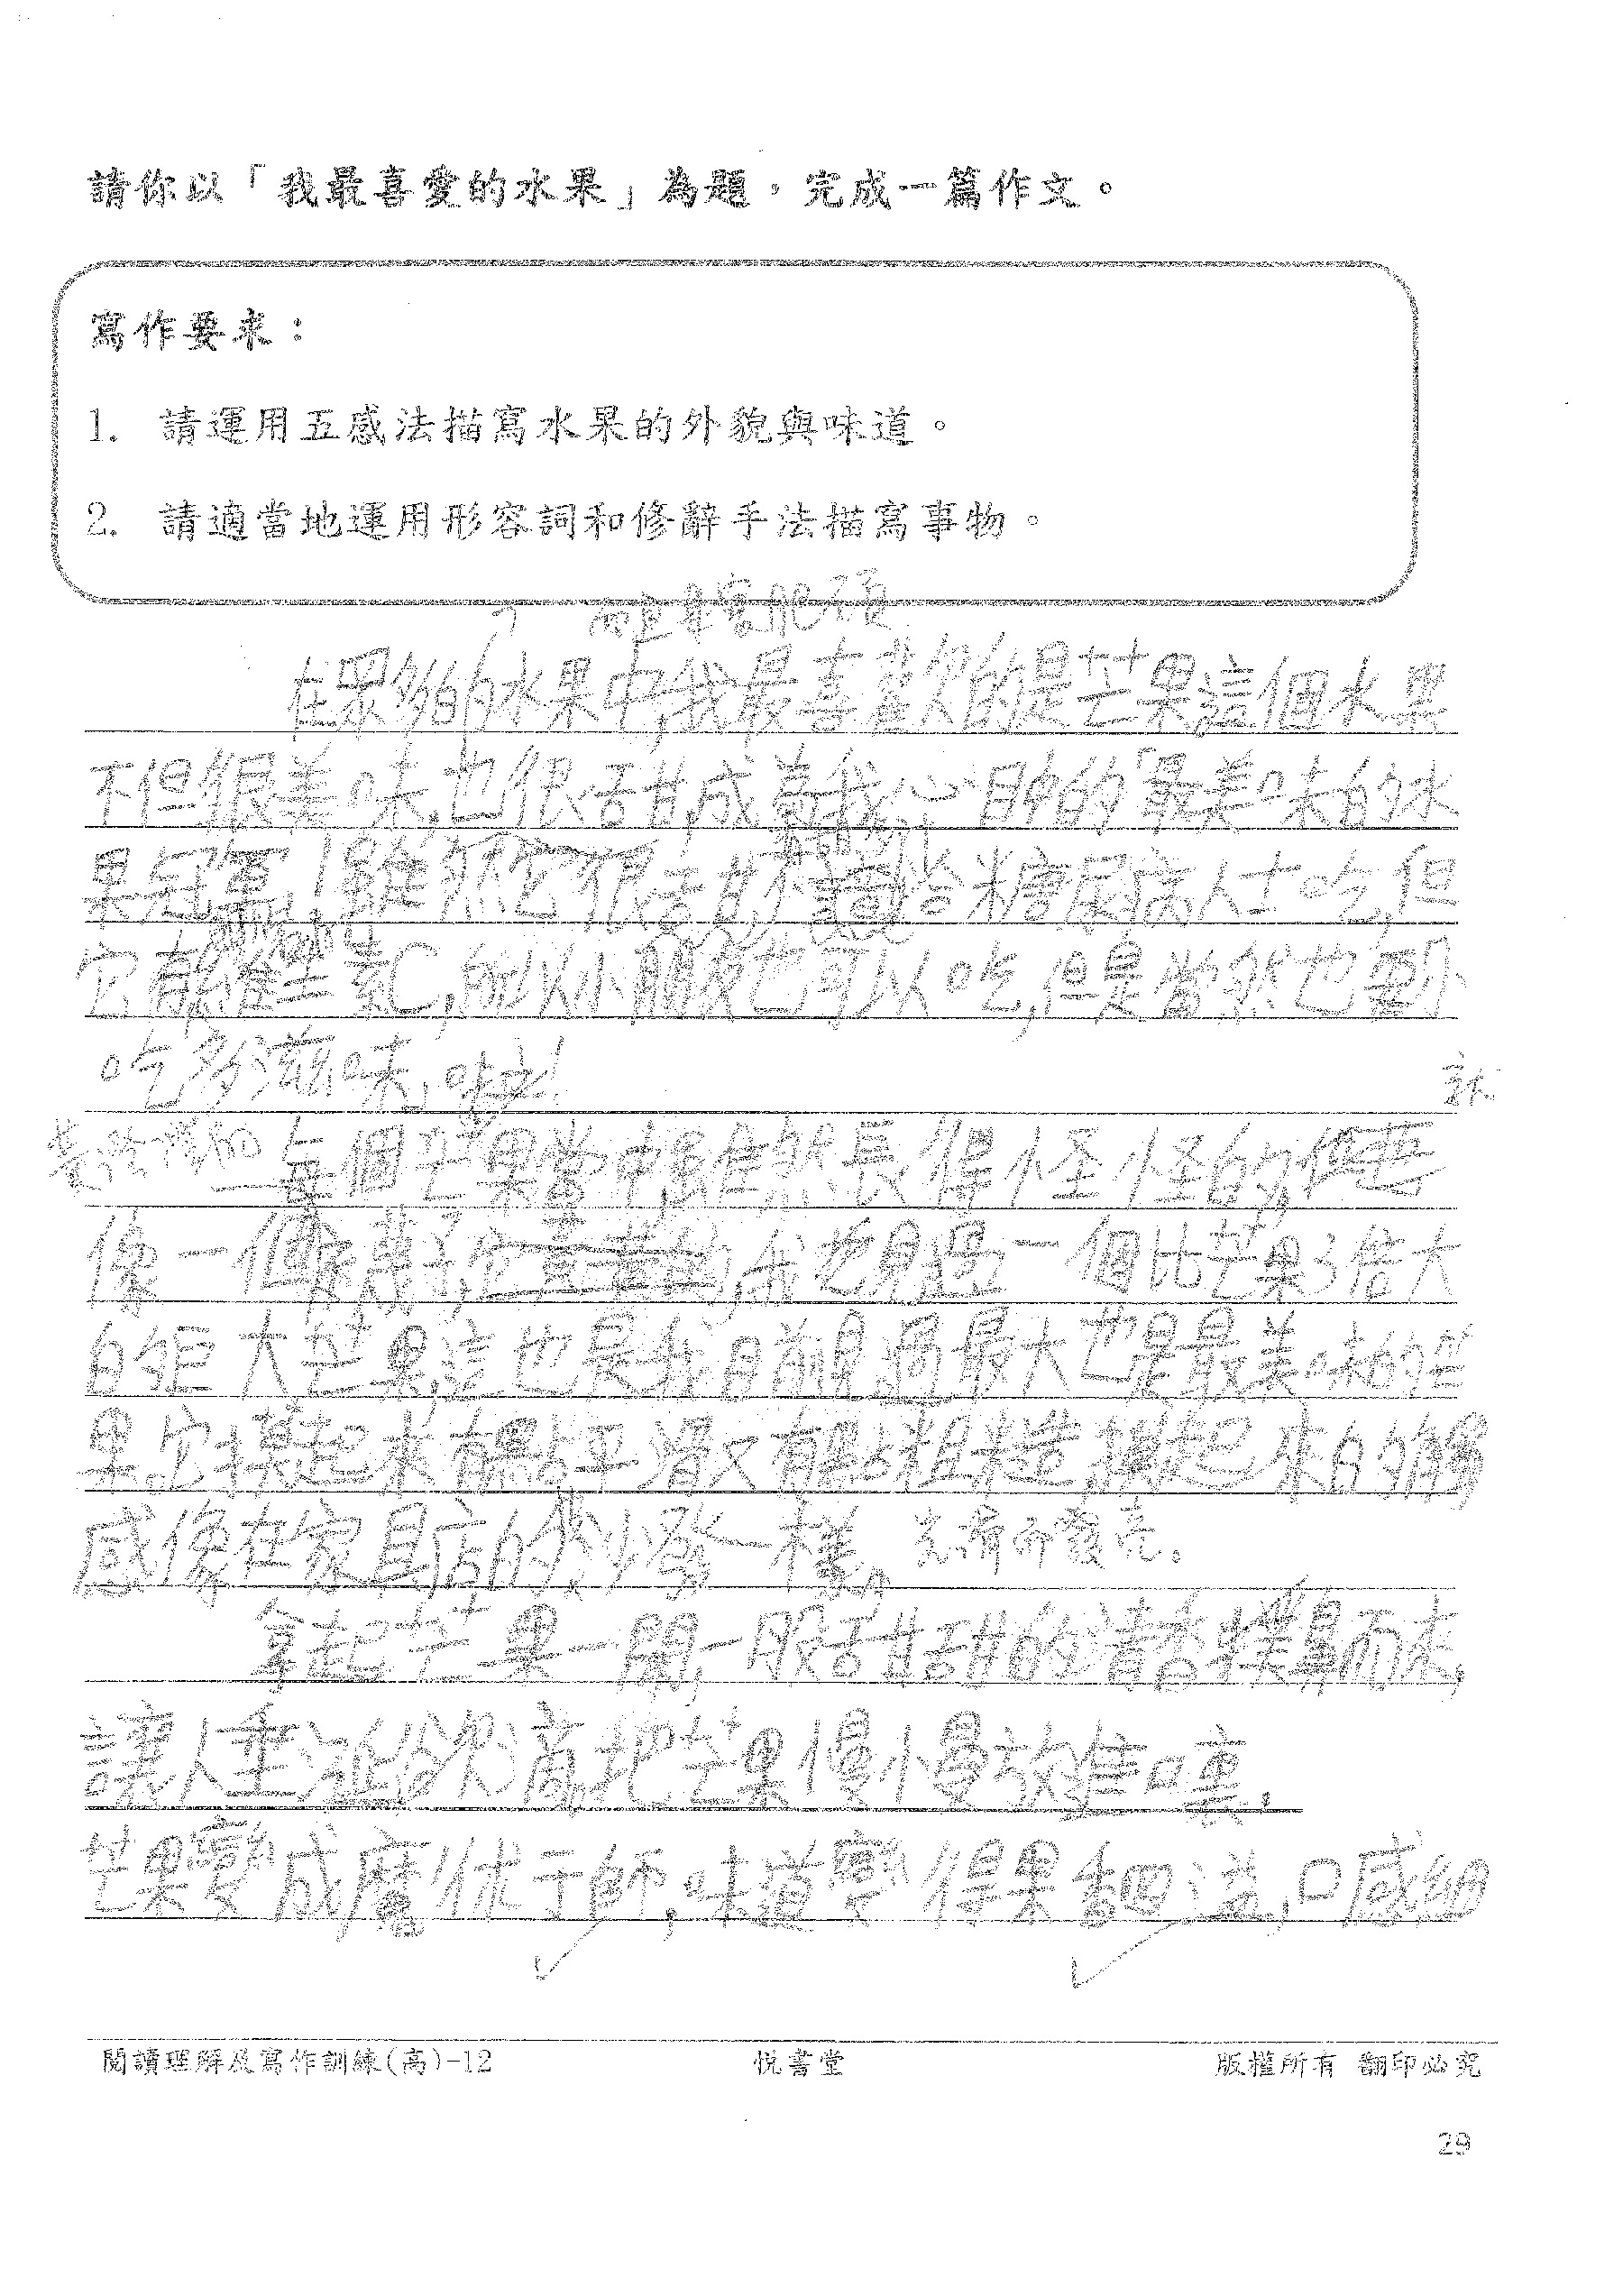 請你以「我最喜愛的水果」為題，完成一篇作文。
寫作要求：
1. 請運用五感法描寫水果的外貌與味道。
2. 請適當地運用形容詞和修辭手法描寫事物。
在眾多的水果中,我最喜歡的是芒果這個水果
不但很美味,也很甜,成為我心目中的「最美味的水
果冠軍」!雖然它很甜,不給糖尿病人士吃,但
它有維生素C,所以小朋友也可以吃,但是當然也要小
吃多滋味,啦!
每個芒果當中,雖然長得怪怪的,
像一個 我也見過一個比芒果3倍大
的巨大芒果,這也是我目前見過最大也是最美味的芒
果。它摸起來有點平滑又有點粗糙,摸起來的觸
感像在家具店的沙發一樣。光滑而發亮。
拿起芒果一聞,一股甜甜的清香撲鼻而來,
讓人垂涎欲滴把芒果慢慢放進嘴裏,
芒果變成魔術師,味道變得果香四溢,口感細
閱讀理解及寫作訓練(高)-12 悅書堂 版權所有 翻印必究
29